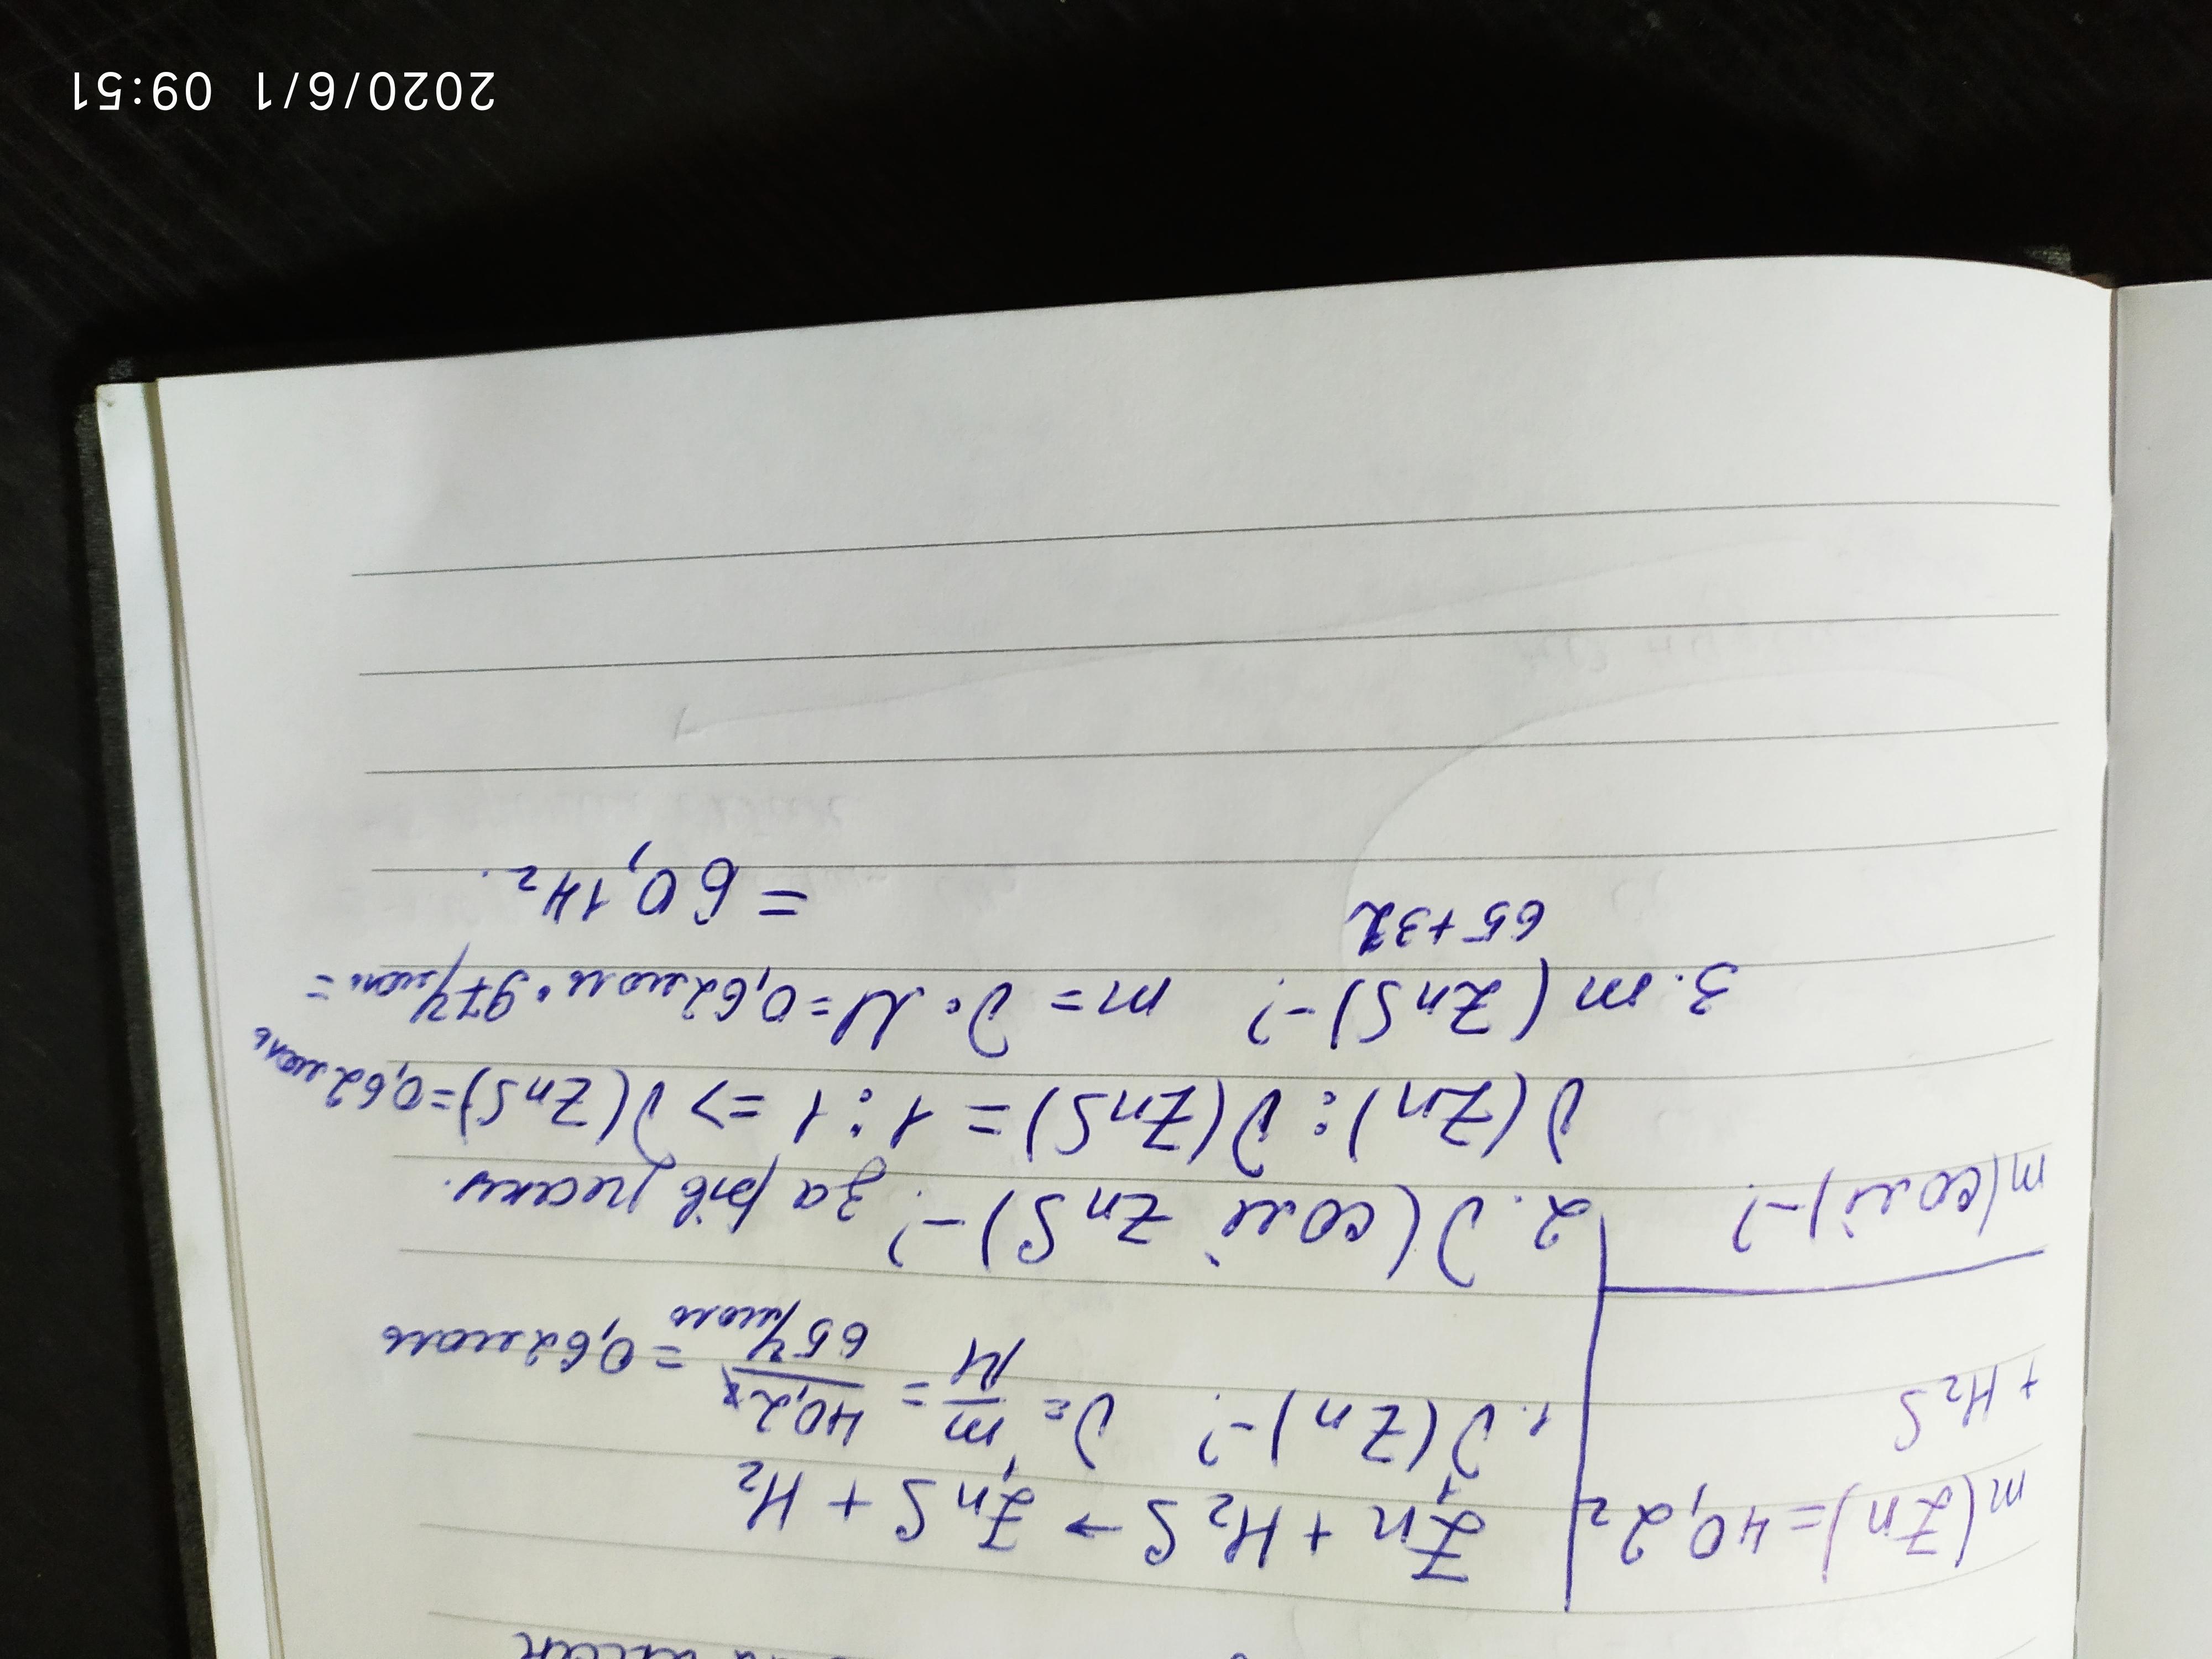 m(Zn)=40,2г
+ H₂S
m(солі)-?
Zn + H₂S → ZnS + H₂
1. ν(Zn)-? ν= m/M = 40,2г/65г/моль = 0,62моль
2. ν(солі ZnS)-? За рів. реакц.
ν(Zn):ν(ZnS)=1:1 => ν(ZnS)=0,62моль
3. m(ZnS)-? m=ν·M=0,62моль·97г/моль=
65+32
=60,14г.
2020/6/1 09:51